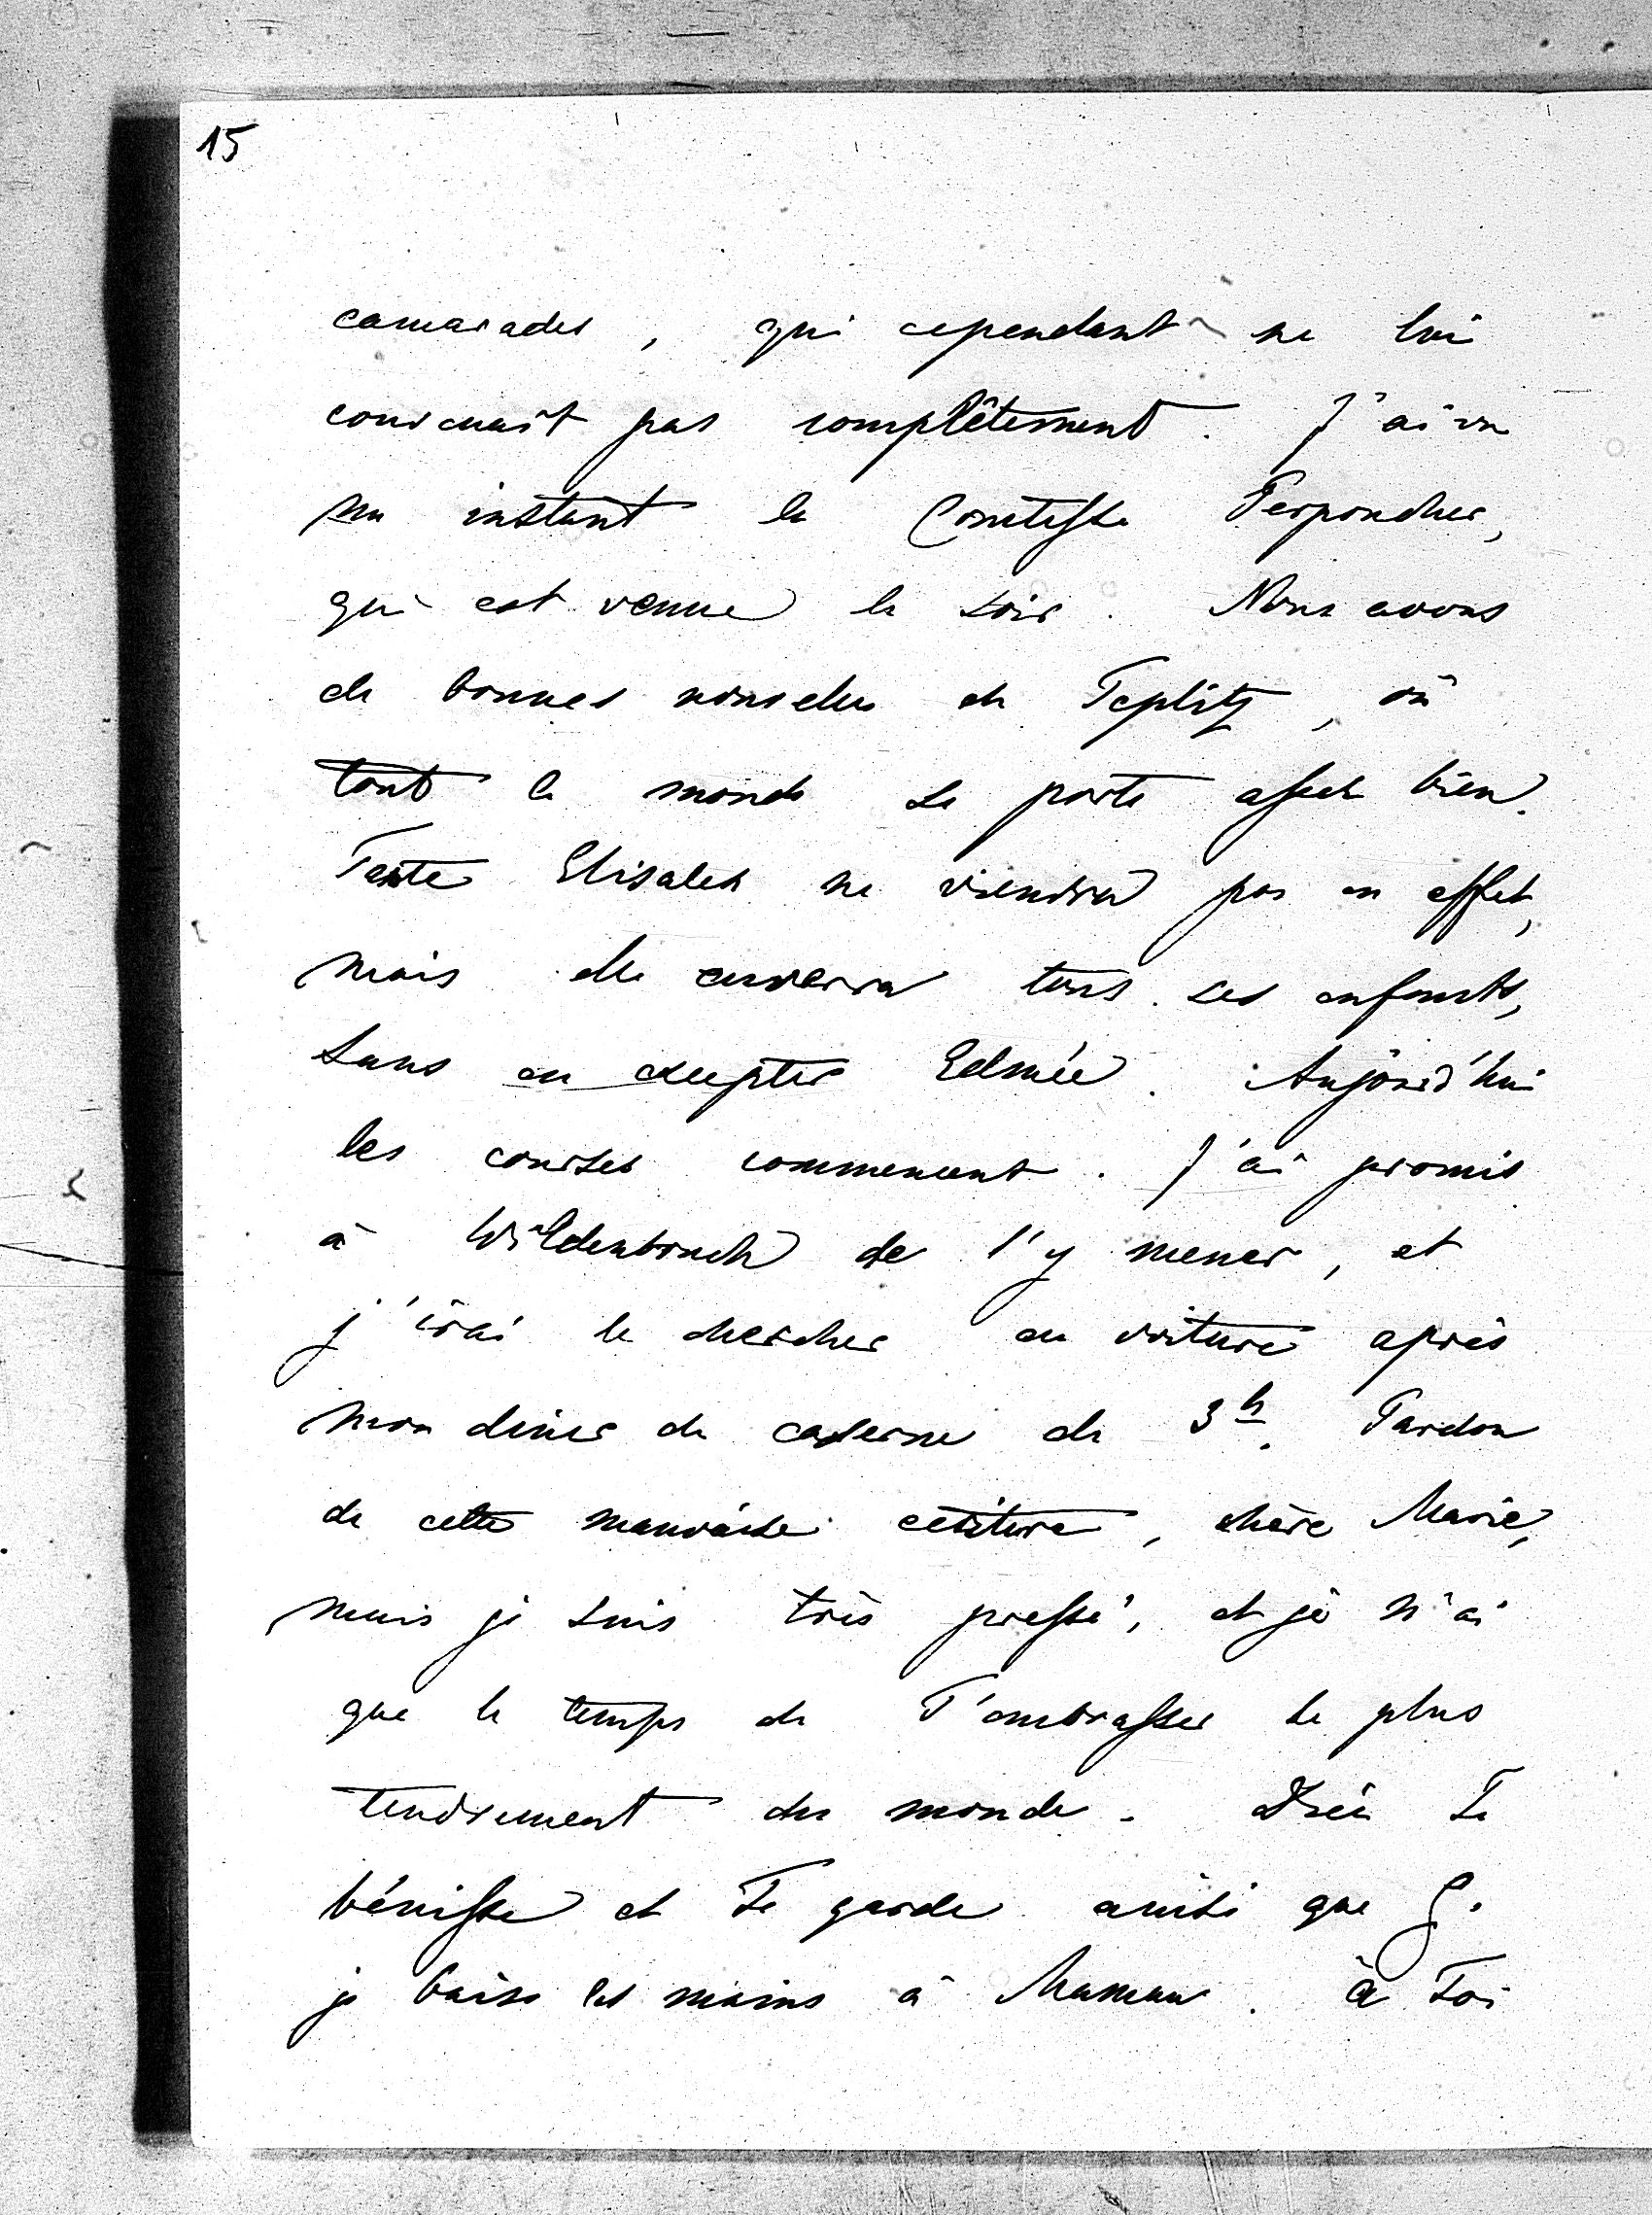 15
camarades, qui cependant ne lui
convenait pas complêtement. J'ai vu
un instant la Comtesse Perponcher,
qui est venue le soir. Nous avons
de bonnes nouvelles de Teplitz, où
tout le monde se porte assez bien.
Tante Elisabeth ne viendra pas en effet,
mais elle enverra tous ses enfants,
sans en excepter Edmée. Aujourd'hui
les courses commencent. J'ai promis
à Wildenbruch de l'y mener, et
j'irai le chercher en voiture après
mon diner de caserne de 3h. Pardon
de cette mauvaise écriture, chère Marie,
mais je suis très pressé, et je n'ai
que le temps de T'embrasser le plus
tendrement du monde. Dieu Te
bénisse et Te garde ainsi que G.
je baise les mains à Maman. à Toi